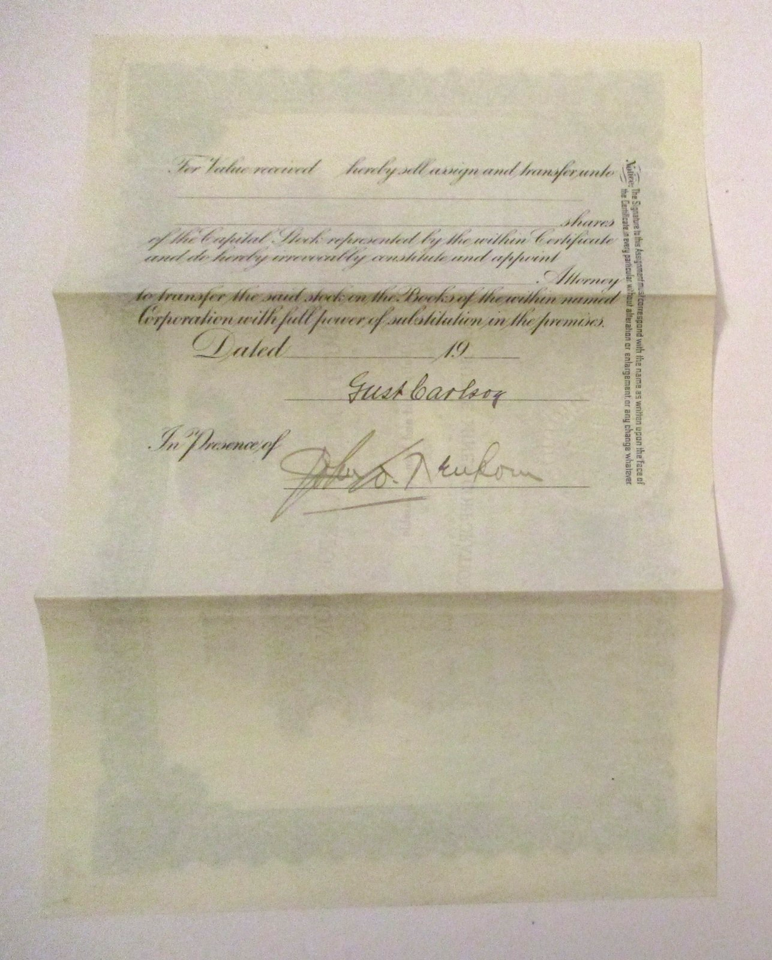 For Value received hereby sell assign and transfer unto
shares
of the Capital Stock represented by the within Certificate
and do hereby irrevocably constitute and appoint
Attorney
to transfer the said stock on the Books of the within named
Corporation with full power of substitution in the premises.
Dated 19
Gust Carlson
In Presence of
John
Notice: The Signature to this Assignment must correspond with the name as written upon the face of
the Certificate in every particular without alteration or enlargement or any change whatever